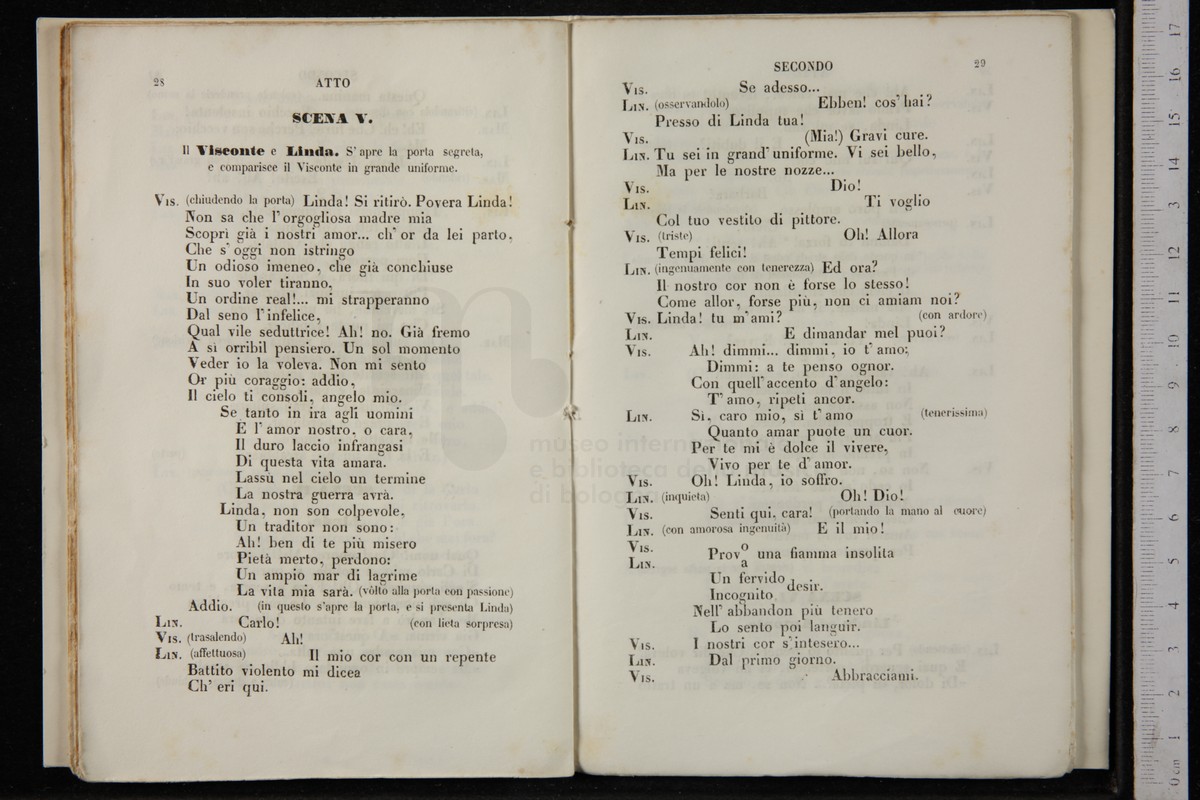 28
ATTO
SCENA V.
Il Visconte e Linda. S' apre la porta segreta,
e comparisce il Visconte in grande uniforme.
Vis. (chiudendo la porta) Linda! Si ritirò. Povera Linda!
Non sa che l' orgogliosa madre mia
Scoprì già i nostri amor... ch' or da lei parto,
Che s' oggi non istringo
Un odioso imeneo, che già conchiuse
In suo voler tiranno,
Un ordine real!... mi strapperanno
Dal seno l' infelice,
Qual vile seduttrice! Ah! no. Già fremo
A sì orribil pensiero. Un sol momento
Veder io la voleva. Non mi sento
Or più coraggio: addio,
Il cielo ti consoli, angelo mio.
Se tanto in ira agli uomini
E l' amor nostro, o cara,
Il duro laccio infrangasi
Di questa vita amara.
Lassù nel cielo un termine
La nostra guerra avrà.
Linda, non son colpevole,
Un traditor non sono:
Ah! ben di te più misero
Pietà merto, perdono:
Un ampio mar di lagrime
La vita mia sarà. (vòlto alla porta con passione)
Addio. (in questo s'apre la porta, e si presenta Linda)
Lin. Carlo! (con lieta sorpresa)
Vis. (trasalendo) Ah!
Lin. (affettuosa) Il mio cor con un repente
Battito violento mi dicea
Ch' eri qui.
SECONDO
29
Vis. Se adesso...
Lin. (osservandolo) Ebben! cos' hai?
Presso di Linda tua!
Vis. (Mia!) Gravi cure.
Lin. Tu sei in grand' uniforme. Vi sei bello,
Ma per le nostre nozze...
Vis. Dio!
Lin. Ti voglio
Col tuo vestito di pittore.
Vis. (triste) Oh! Allora
Tempi felici!
Lin. (ingenuamente con tenerezza) Ed ora?
Il nostro cor non è forse lo stesso!
Come allor, forse più, non ci amiam noi?
Vis. Linda! tu m' ami? (con ardore)
Lin. E dimandar mel puoi?
Vis. Ah! dimmi... dimmi, io t' amo:
Dimmi: a te penso ognor.
Con quell' accento d' angelo:
T' amo, ripeti ancor.
Lin. Sì, caro mio, sì t' amo (tenerissima)
Quanto amar puote un cuor.
Per te mi è dolce il vivere,
Vivo per te d' amor.
Vis. Oh! Linda, io soffro.
Lin. (inquieta) Oh! Dio!
Vis. Senti qui, cara! (portando la mano al cuore)
Lin. (con amorosa ingenuità) E il mio!
Vis. Provo una fiamma insolita
Lin. a
Un fervido desir.
Incognito
Nell' abbandon più tenero
Lo sento poi languir.
Vis. I nostri cor s' intesero...
Lin. Dal primo giorno.
Vis. Abbracciami.
museo internazionale
e biblioteca della musica
di bologna
0 cm 1 2 3 4 5 6 7 8 9 10 11 12 13 14 15 16 17